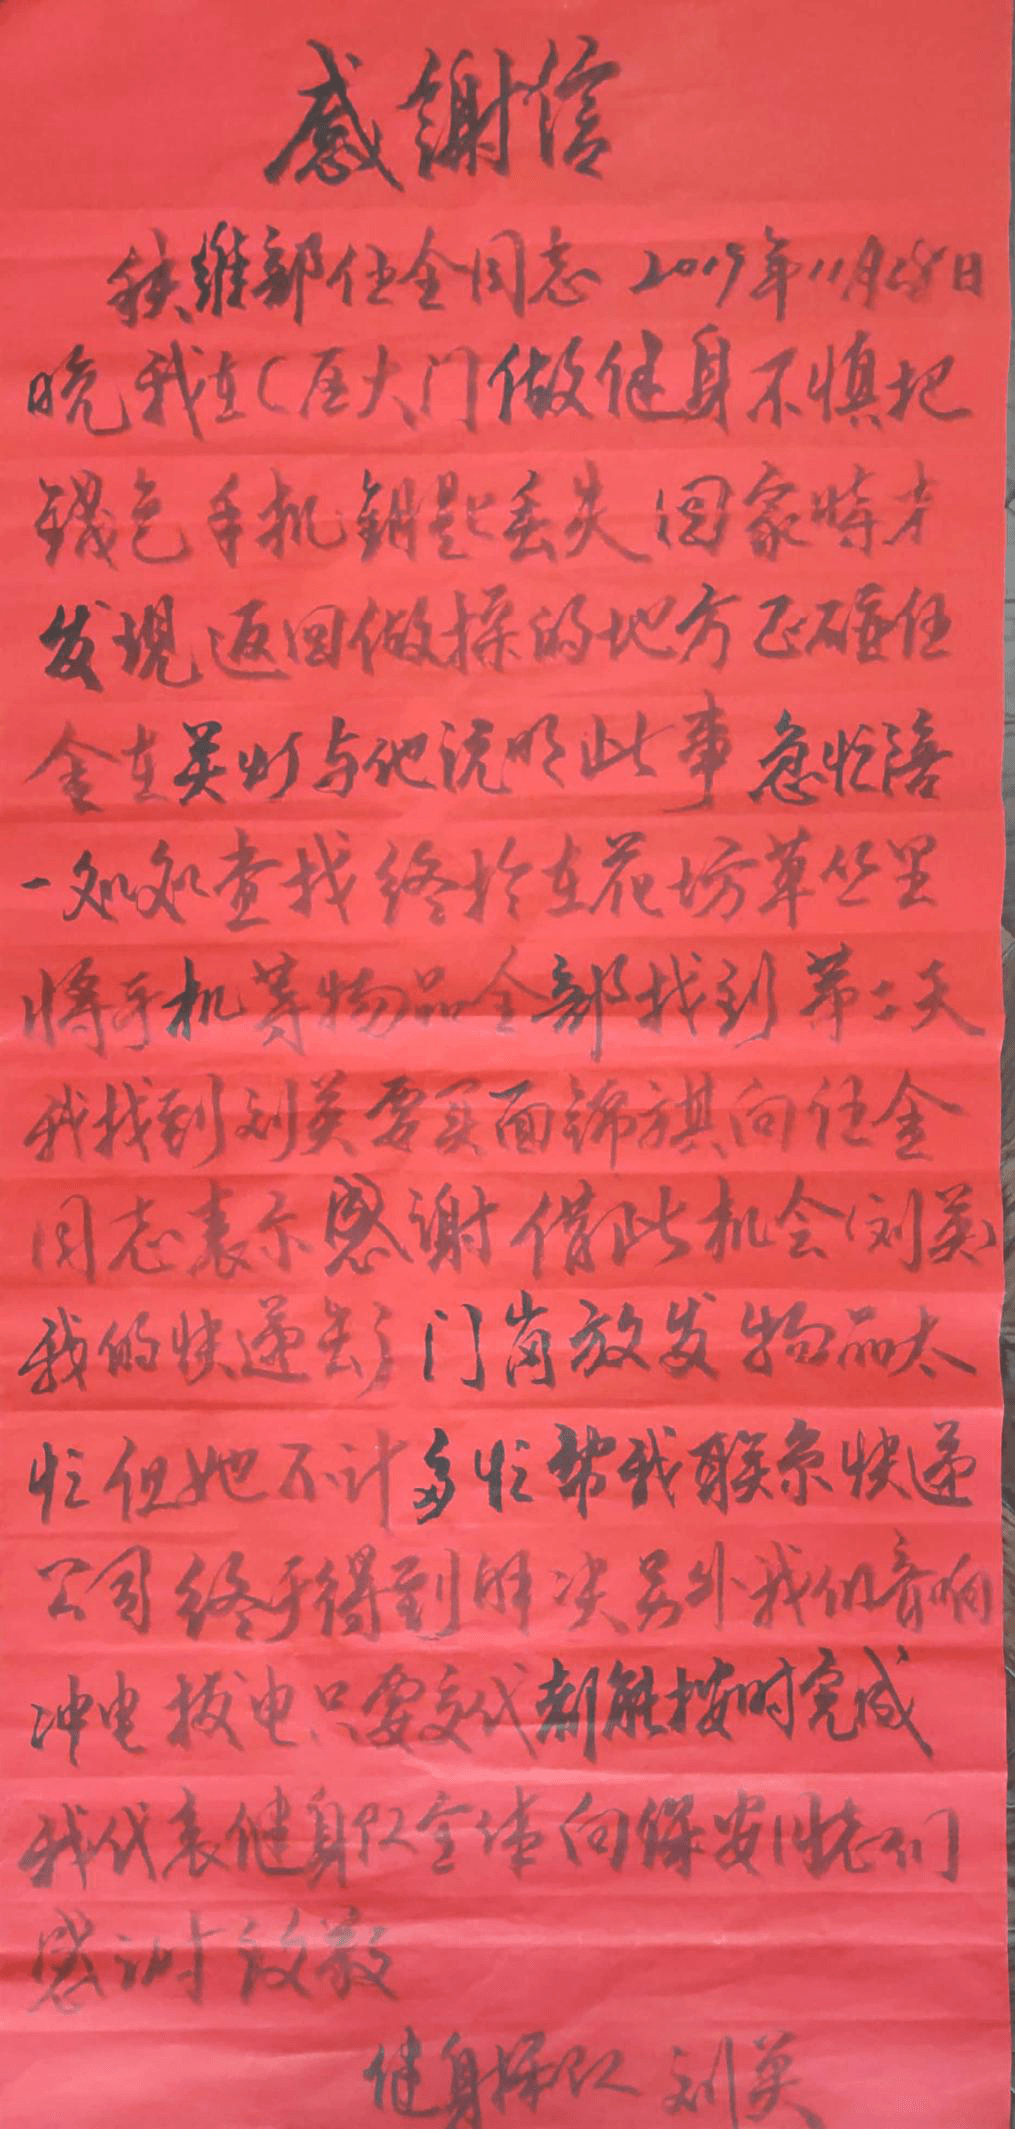 感謝信
秩維部任全同志 2019年11月28日
晚 我在C座大门做健身不慎把
錢包手机鑰匙丢失 回家時才
发現返回做操的地方正碰任
全在关灯与他说明此事 急忙陪
一处处查找 终於在花坊草丛里
將手机等物品全部找到 第二天
我找到刘英要买面锦旗向任金
同志表示感謝 借此机会(刘英)
我的快递丢了 门岗放发物品太
忙但她不计多忙帮我联系快递
公司终于得到解决另外我们音响
冲电拔电只要交代都能按时完成
我代表健身队全体向保安同志们
感谢致敬
健身操队 刘英